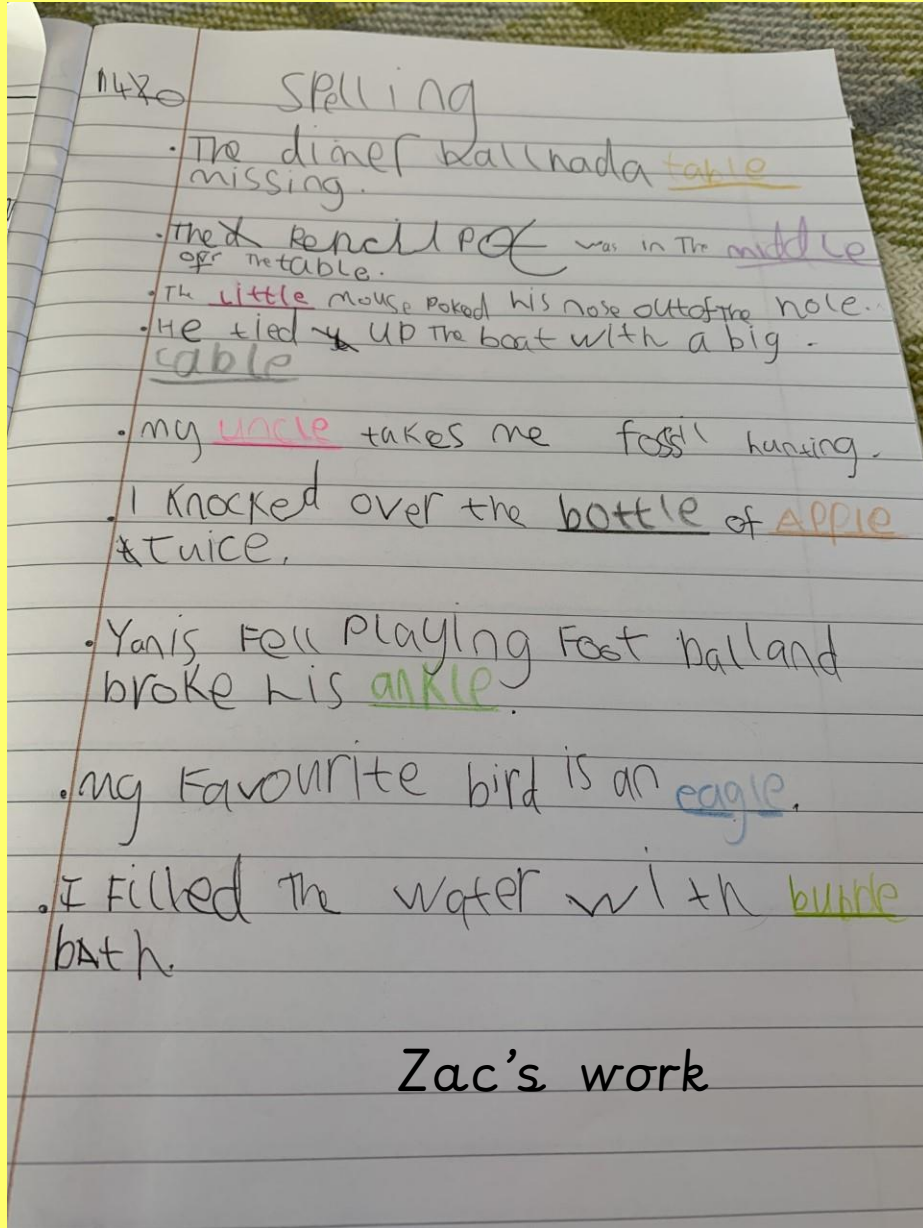 Spelling
· The dinner ballhada table
missing.
· The pencil pot was in The middle
off The table.
· Th little mouse poked his nose out of The hole.
· He tied up The boat with a big
cable
· my uncle takes me fossil hunting.
· I knocked over the bottle of Apple
tuice.
· Yanis Fell Playing Foot balland
broke his ankle.
· my Favourite bird is an eagle.
· I Filled The water with buble
bAth.
Zac's work